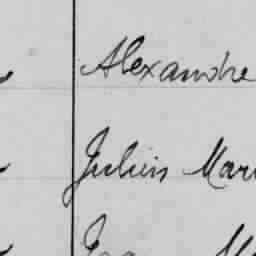 Alexandre
Julien Mar